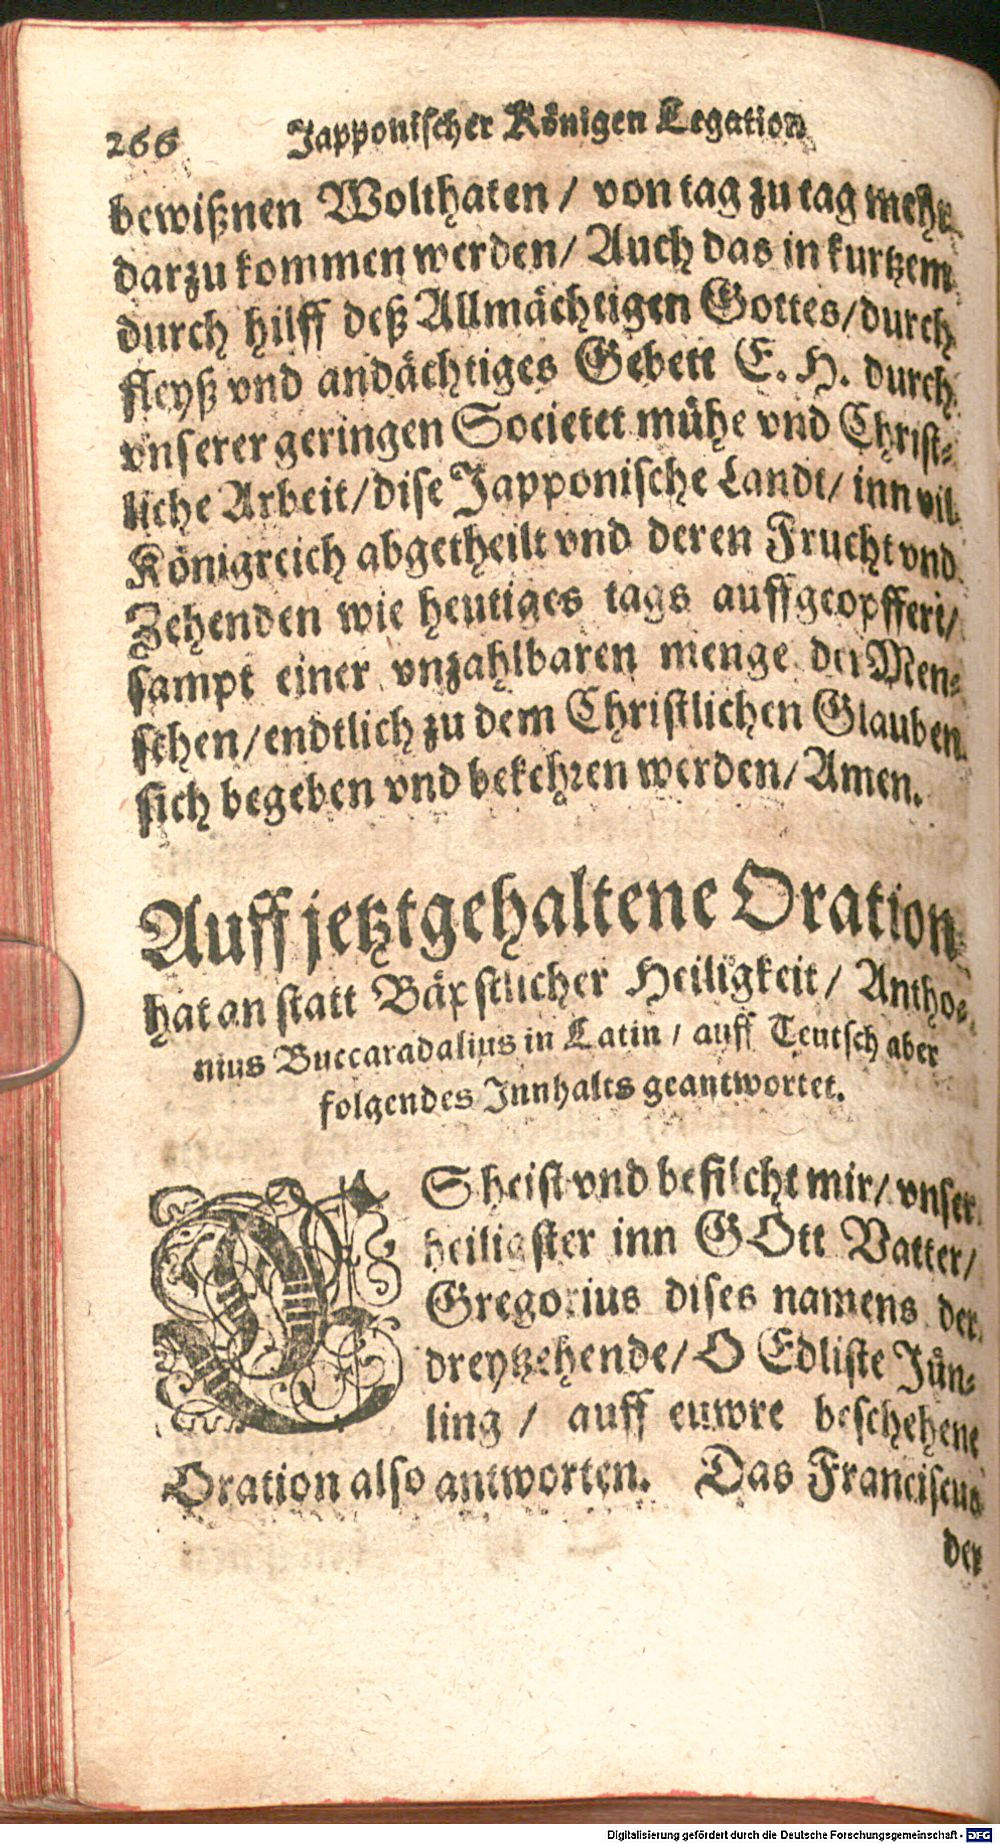 266 Japponischer Königen Legation
bewißnen Wolthaten / von tag zu tag mehr
darzu kommen werden / Auch das in kurtzem
durch hilff deß Allmächtigen Gottes / durch
fleyß vnd andächtiges Gebett E. H. durch
vnserer geringen Societet mühe vnd Christ-
liche Arbeit / dise Japponische Landt / inn vil
Königreich abgetheilt vnd deren Frucht vnd
Zehenden wie heutiges tags auffgeopffert /
sampt einer vnzahlbaren menge der Men-
schen / endtlich zu dem Christlichen Glauben
sich begeben vnd bekehren werden / Amen.
Auff jetztgehaltene Oration
hat an statt Bäpstlicher Heiligkeit / Antho-
nius Buccaradalius in Latin / auff Teutsch aber
folgendes Innhalts geantwortet.
ES heist vnd befilcht mir / vnser
heiligster inn GOtt Vatter /
Gregorius dises namens der
dreytzehende / O Edliste Jün-
ling / auff euwre beschehene
Oration also antworten. Das Franciscus
der
Digitalisierung gefördert durch die Deutsche Forschungsgemeinschaft - DFG